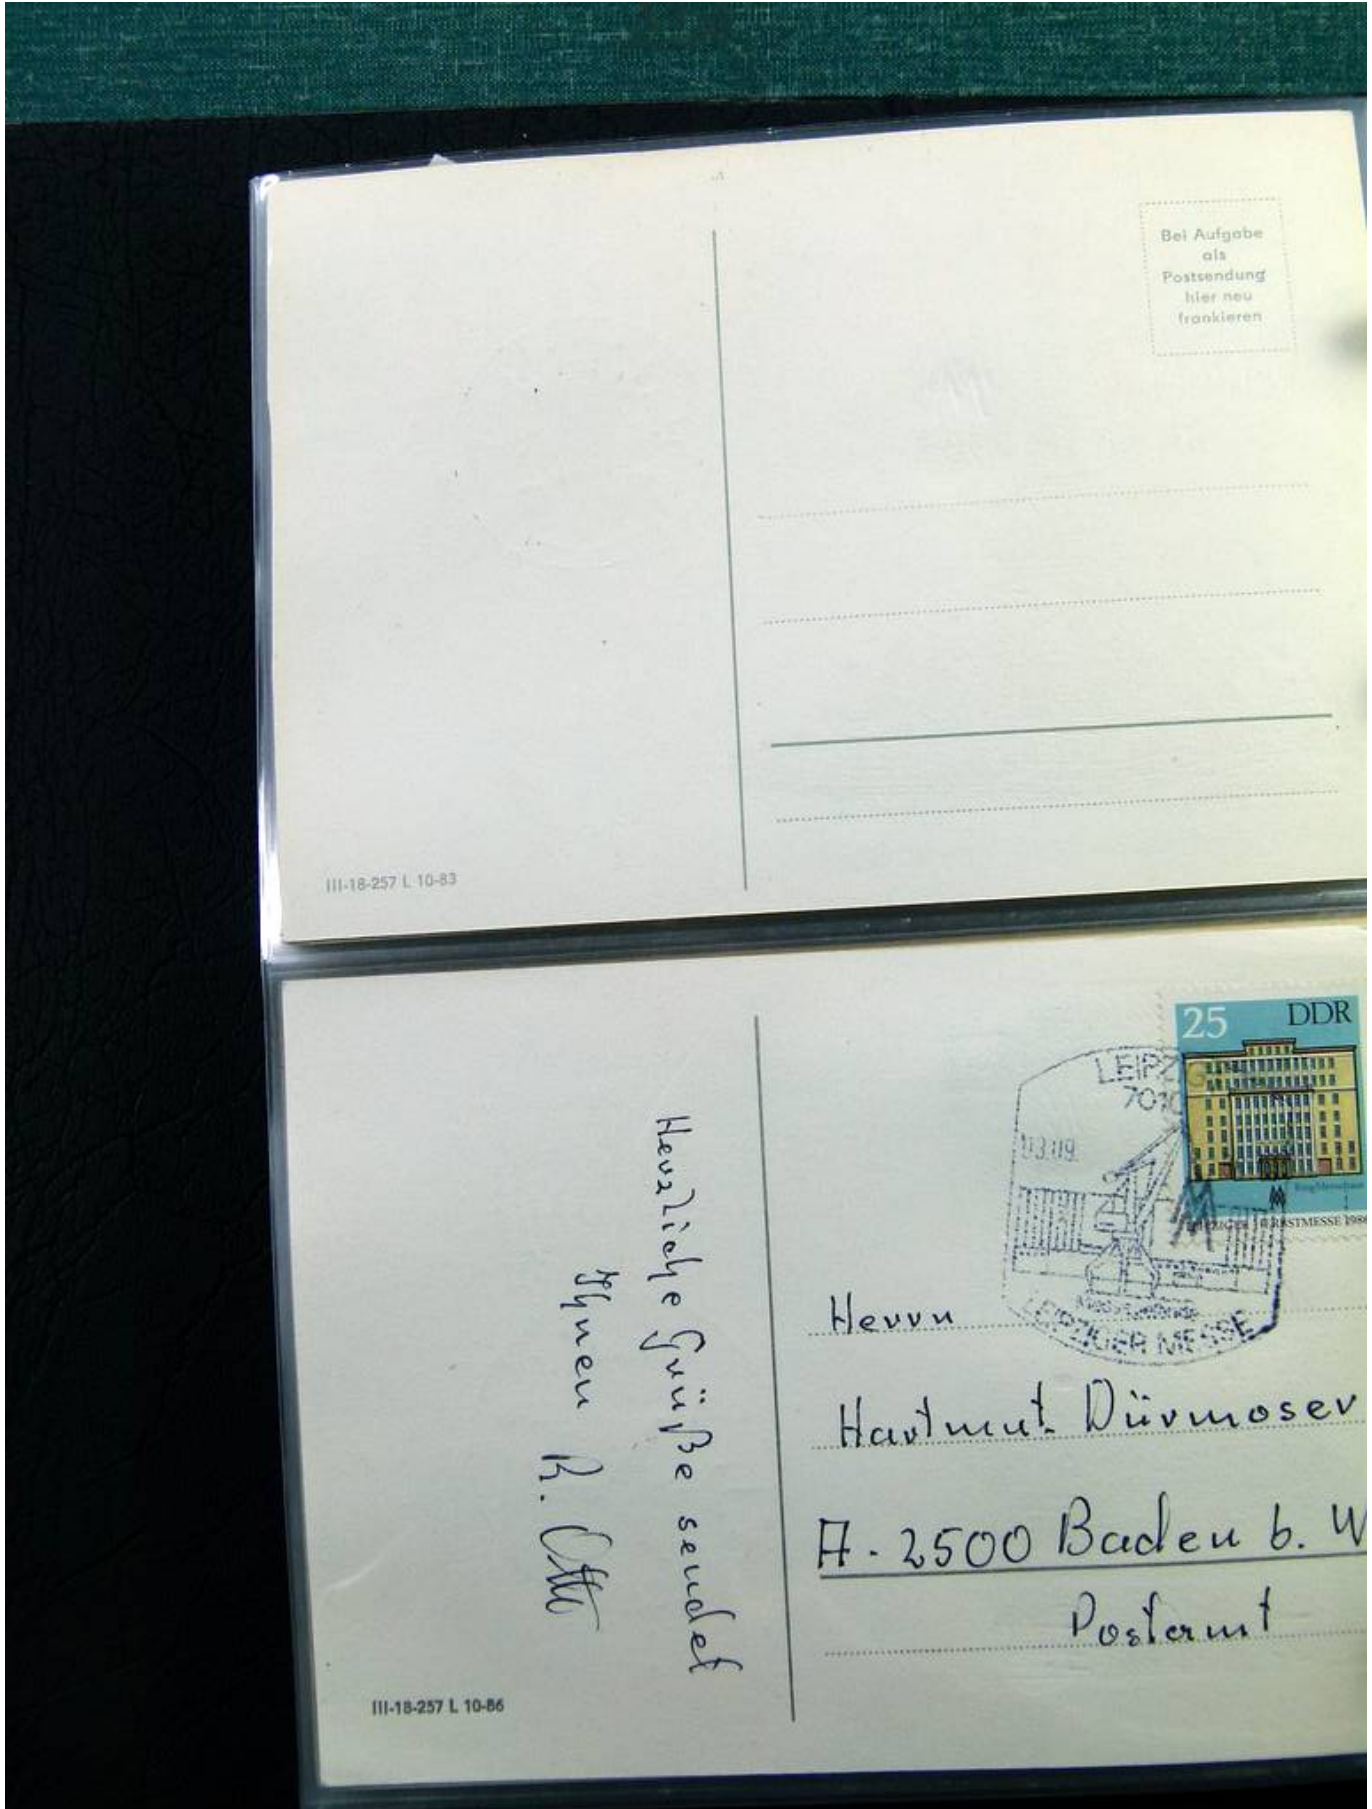 Bei Aufgabe
als
Postsendung
hier neu
frankieren
III-18-257 L 10-83
25 DDR
LEIPZIG
7010
03.09.
LEIPZIGER HERBSTMESSE 1986
LEIPZIGER MESSE
Herzliche Grüße sendet
Ihnen R. Otto
Herrn
Hartmut Dürmoser
A-2500 Baden b. W
Postamt
III-18-257 L 10-86